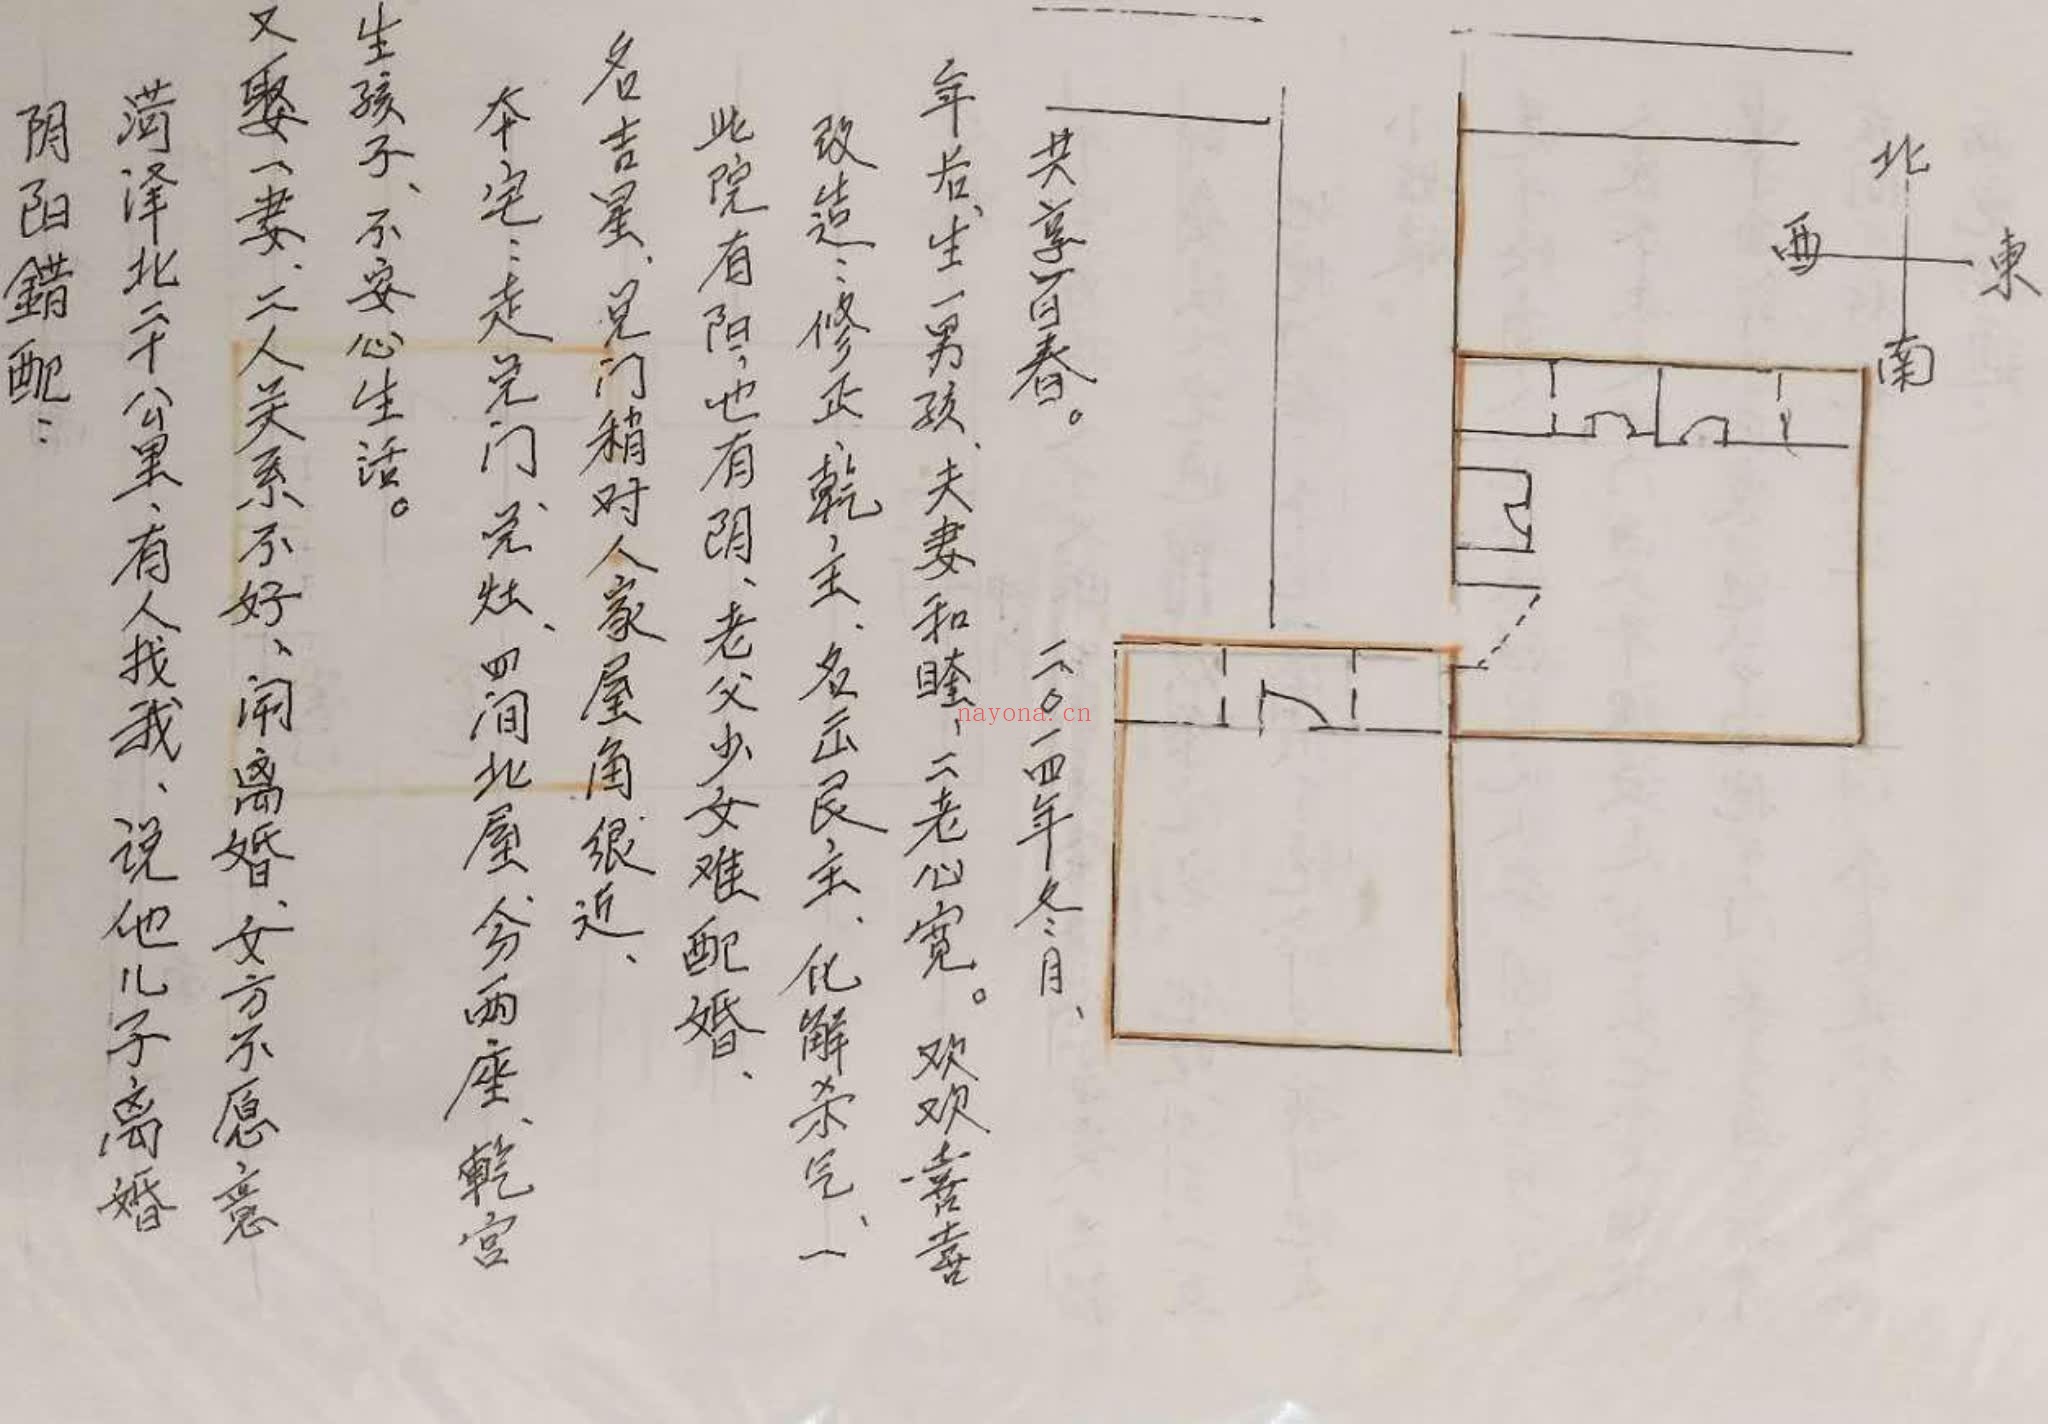 阴阳錯配:
菏泽北二十公里、有人找我、说他儿子离婚
又娶一妻、二人关系不好、闹离婚、女方不愿意
生孩子、不安心生活。
本宅:走兑门、兑灶、四间北屋、分两座、乾宫
名吉星、兑门稍对人家屋角很近、
此院有阳,也有阴、老父少女难配婚、
改造:修正,乾,主、名 艮主、化解杀气、一
年后、生一男孩、夫妻和睦、二老心宽。欢欢喜喜
共享百春。 二〇一四年冬月、
北
西
東
南
nayona.cn